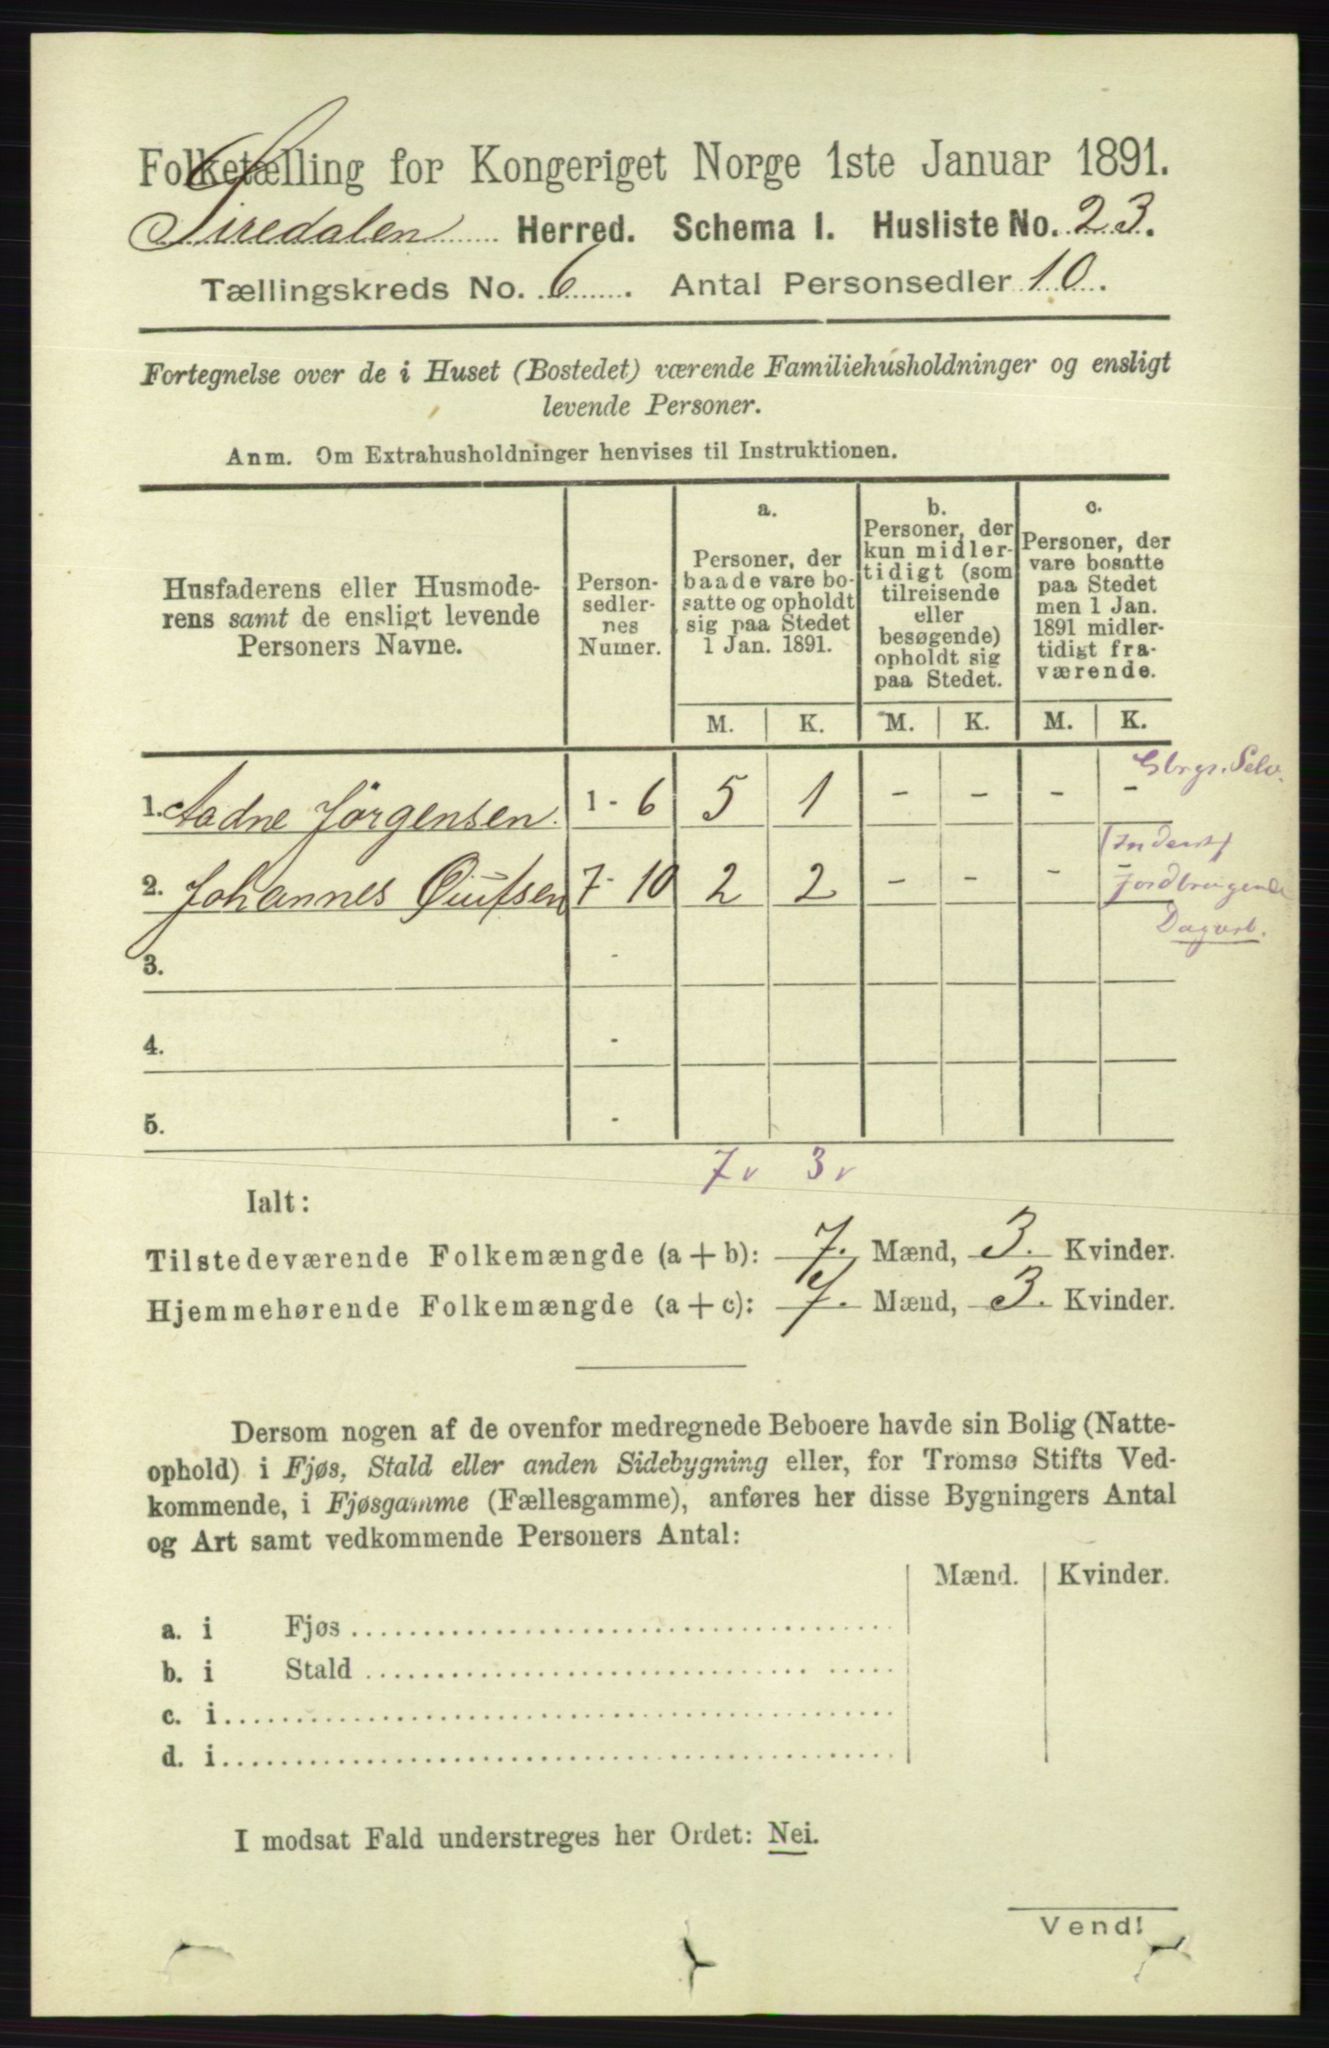 Folketælling for Kongeriget Norge 1ste Januar 1891.
Siredalen Herred. Schema I. Husliste No. 23.
Tællingskreds No. 6. Antal Personsedler 10.
Fortegnelse over de i Huset (Bostedet) værende Familiehusholdninger og ensligt
levende Personer.
Anm. Om Extrahusholdninger henvises til Instruktionen.
Husfaderens eller Husmode-
rens samt de ensligt levende
Personers Navne.
Person-
sedler-
nes
Numer.
a.
Personer, der
baade vare bo-
satte og opholdt
sig paa Stedet
1 Jan. 1891.
b.
Personer, der
kun midler-
tidigt (som
tilreisende
eller
besøgende)
opholdt sig
paa Stedet.
c.
Personer, der
vare bosatte
paa Stedet
men 1 Jan.
1891 midler-
tidigt fra-
værende.
M. K. M. K. M. K.
Gbrgr. Selv.
1. Aadne Jørgensen. 1 - 6 5 1 - - - -
2. Johannes 7 - 10 2 2 - - - -
Jordbrugende
Dagarb.
3. -
4. -
5. -
7 v 3 v
Ialt:
Tilstedeværende Folkemængde (a + b): 7. Mænd, 3. Kvinder.
Hjemmehørende Folkemængde (a + c): 7. Mænd, 3. Kvinder.
Dersom nogen af de ovenfor medregnede Beboere havde sin Bolig (Natte-
ophold) i Fjøs, Stald eller anden Sidebygning eller, for Tromsø Stifts Ved-
kommende, i Fjøsgamme (Fællesgamme), anføres her disse Bygningers Antal
og Art samt vedkommende Personers Antal:
Mænd. Kvinder.
a. i Fjøs
b. i Stald
c. i
d. i
I modsat Fald understreges her Ordet: Nei.
Vend!